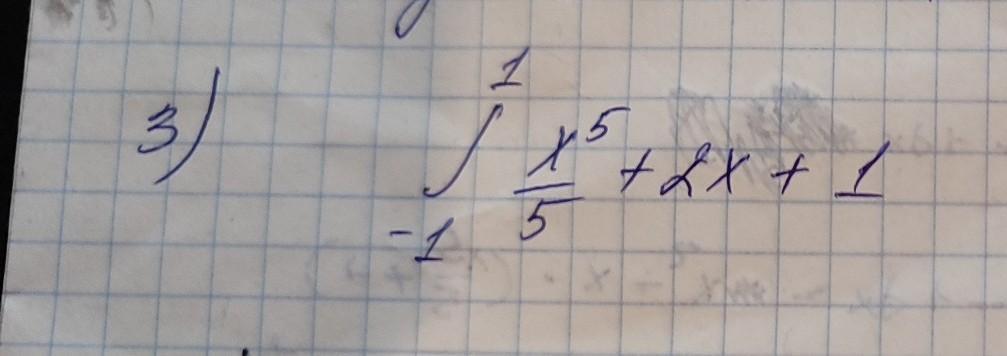 3) ∫₋₁¹ x⁵/5 + 2x + 1